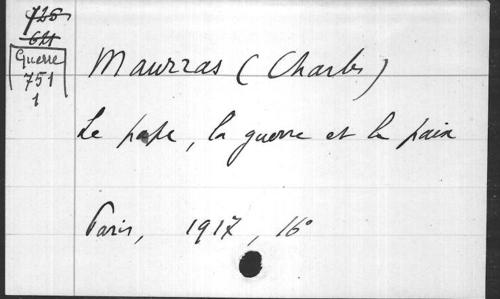 726
621
Guerre
751
1
Maurras (Charles)
Le pape, la guerre et la paix
Paris, 1917, 16°